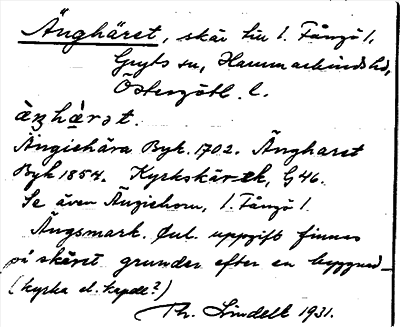 Änghäret, skär till 1. Fångö 1,
Gryts sn, Hammarkinds hd,
Östergötl. l.
Ängiehära Byk. 1702. Ängharet
Byk 1854. Kyrkskär ek, G46.
Se även Ängiehorn, 1. Fångö 1.
Ängsmark. Enl. uppgift finnes
på skäret grunder efter en byggnad
(kyrka el. kapell?)
Th. Lindell 1931.